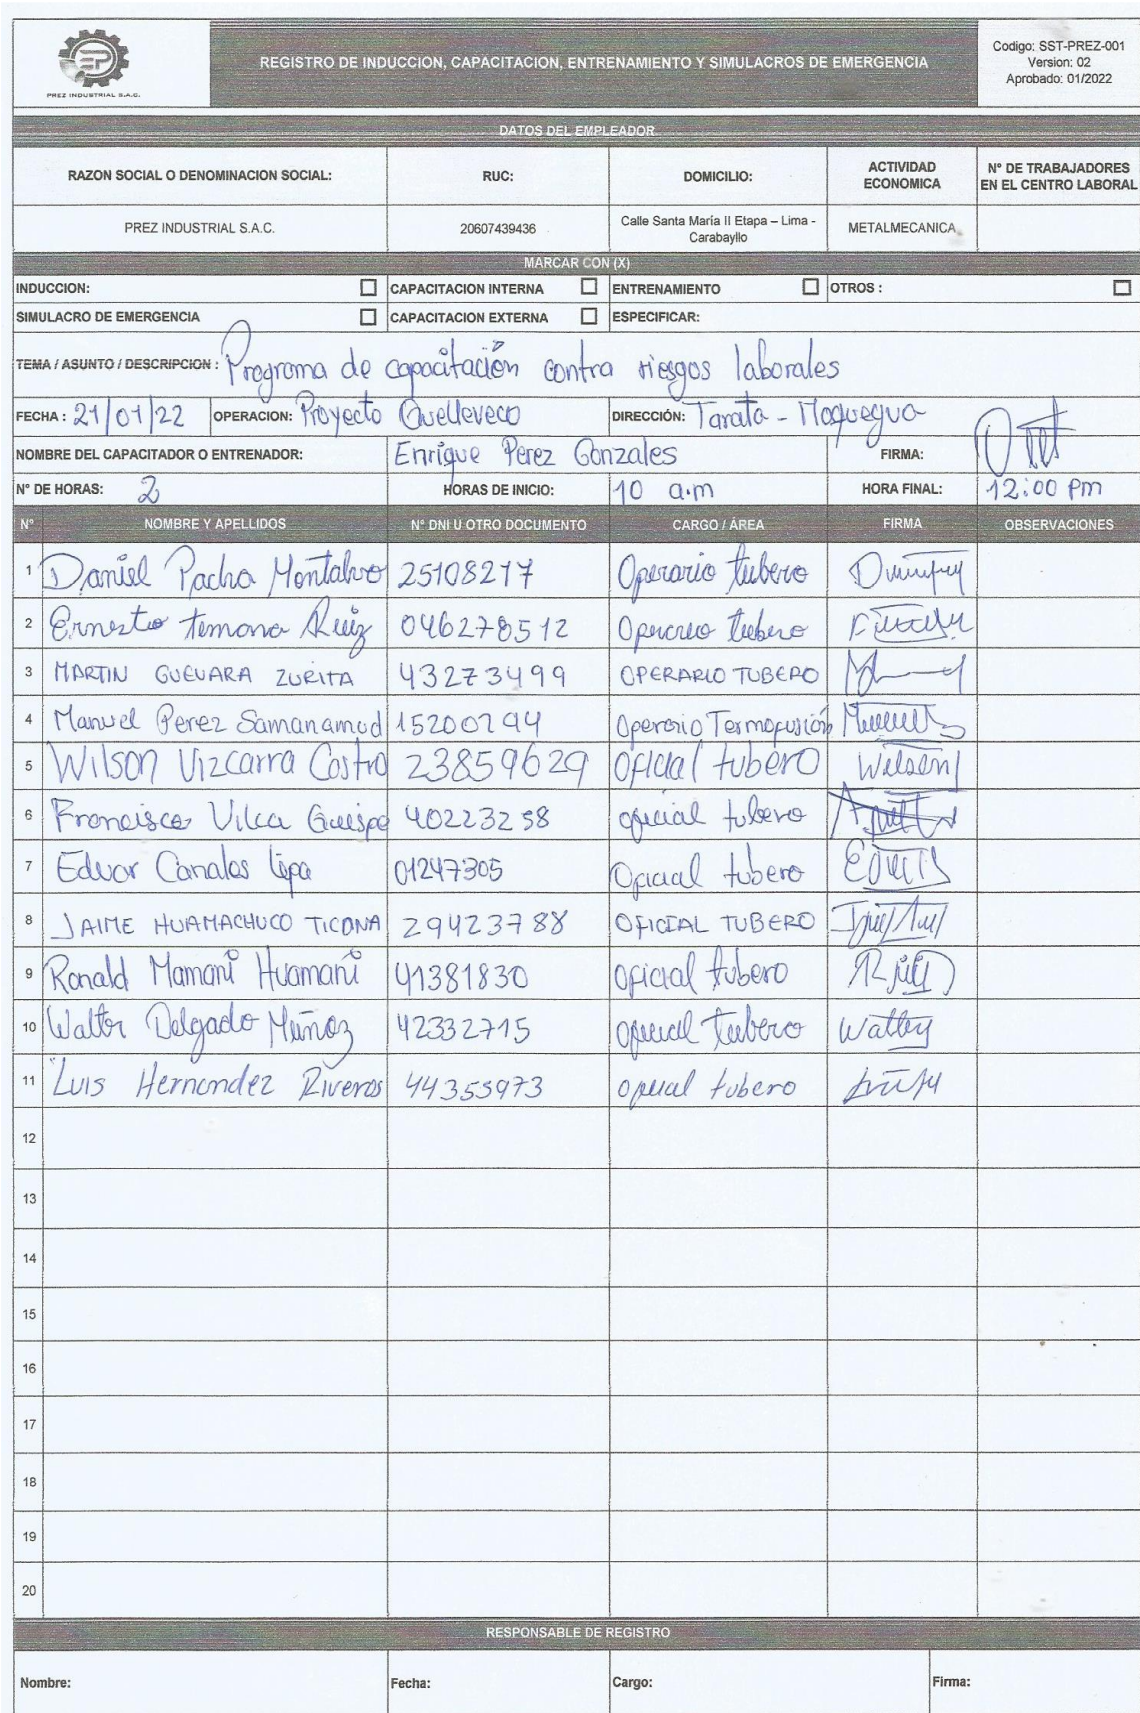 EP
PREZ INDUSTRIAL S.A.C.
REGISTRO DE INDUCCION, CAPACITACION, ENTRENAMIENTO Y SIMULACROS DE EMERGENCIA
Codigo: SST-PREZ-001
Version: 02
Aprobado: 01/2022
DATOS DEL EMPLEADOR
RAZON SOCIAL O DENOMINACION SOCIAL: RUC: DOMICILIO: ACTIVIDAD ECONOMICA N° DE TRABAJADORES EN EL CENTRO LABORAL
PREZ INDUSTRIAL S.A.C. 20607439436 Calle Santa María II Etapa – Lima - Carabayllo METALMECANICA
MARCAR CON (X)
INDUCCION: CAPACITACION INTERNA ENTRENAMIENTO OTROS :
SIMULACRO DE EMERGENCIA CAPACITACION EXTERNA ESPECIFICAR:
TEMA / ASUNTO / DESCRIPCION : Programa de capacitación contra riesgos laborales
FECHA : 21/01/22 OPERACION: Proyecto Quelleveco DIRECCIÓN: Tarata - Moquegua
NOMBRE DEL CAPACITADOR O ENTRENADOR: Enrique Perez Gonzales FIRMA:
N° DE HORAS: 2 HORAS DE INICIO: 10 a.m HORA FINAL: 12:00 pm
N° NOMBRE Y APELLIDOS N° DNI U OTRO DOCUMENTO CARGO / ÁREA FIRMA OBSERVACIONES
1 Daniel Pacha Montalvo 25108217 Operario tubero
2 Ernesto Temana Ruiz 046278512 Operario tubero
3 MARTIN GUEVARA ZURITA 43273499 OPERARIO TUBERO
4 Manuel Perez Samanamud 15200294 Operario Termofusión
5 Wilson Vizcarra Castro 23859629 Oficial tubero Wilson
6 Francisco Vilca Quispe 40223258 oficial tubero
7 Edvar Canalas 01247305 Oficial tubero
8 JAIME HUAMACHUCO TICONA 29423788 OFICIAL TUBERO
9 Ronald Mamani Huamani 41381830 Oficial tubero
10 Walter Delgado Muñoz 42332715 oficial tubero
11 Luis Hernandez Riveros 44355973 oficial tubero
12
13
14
15
16
17
18
19
20
RESPONSABLE DE REGISTRO
Nombre: Fecha: Cargo: Firma: